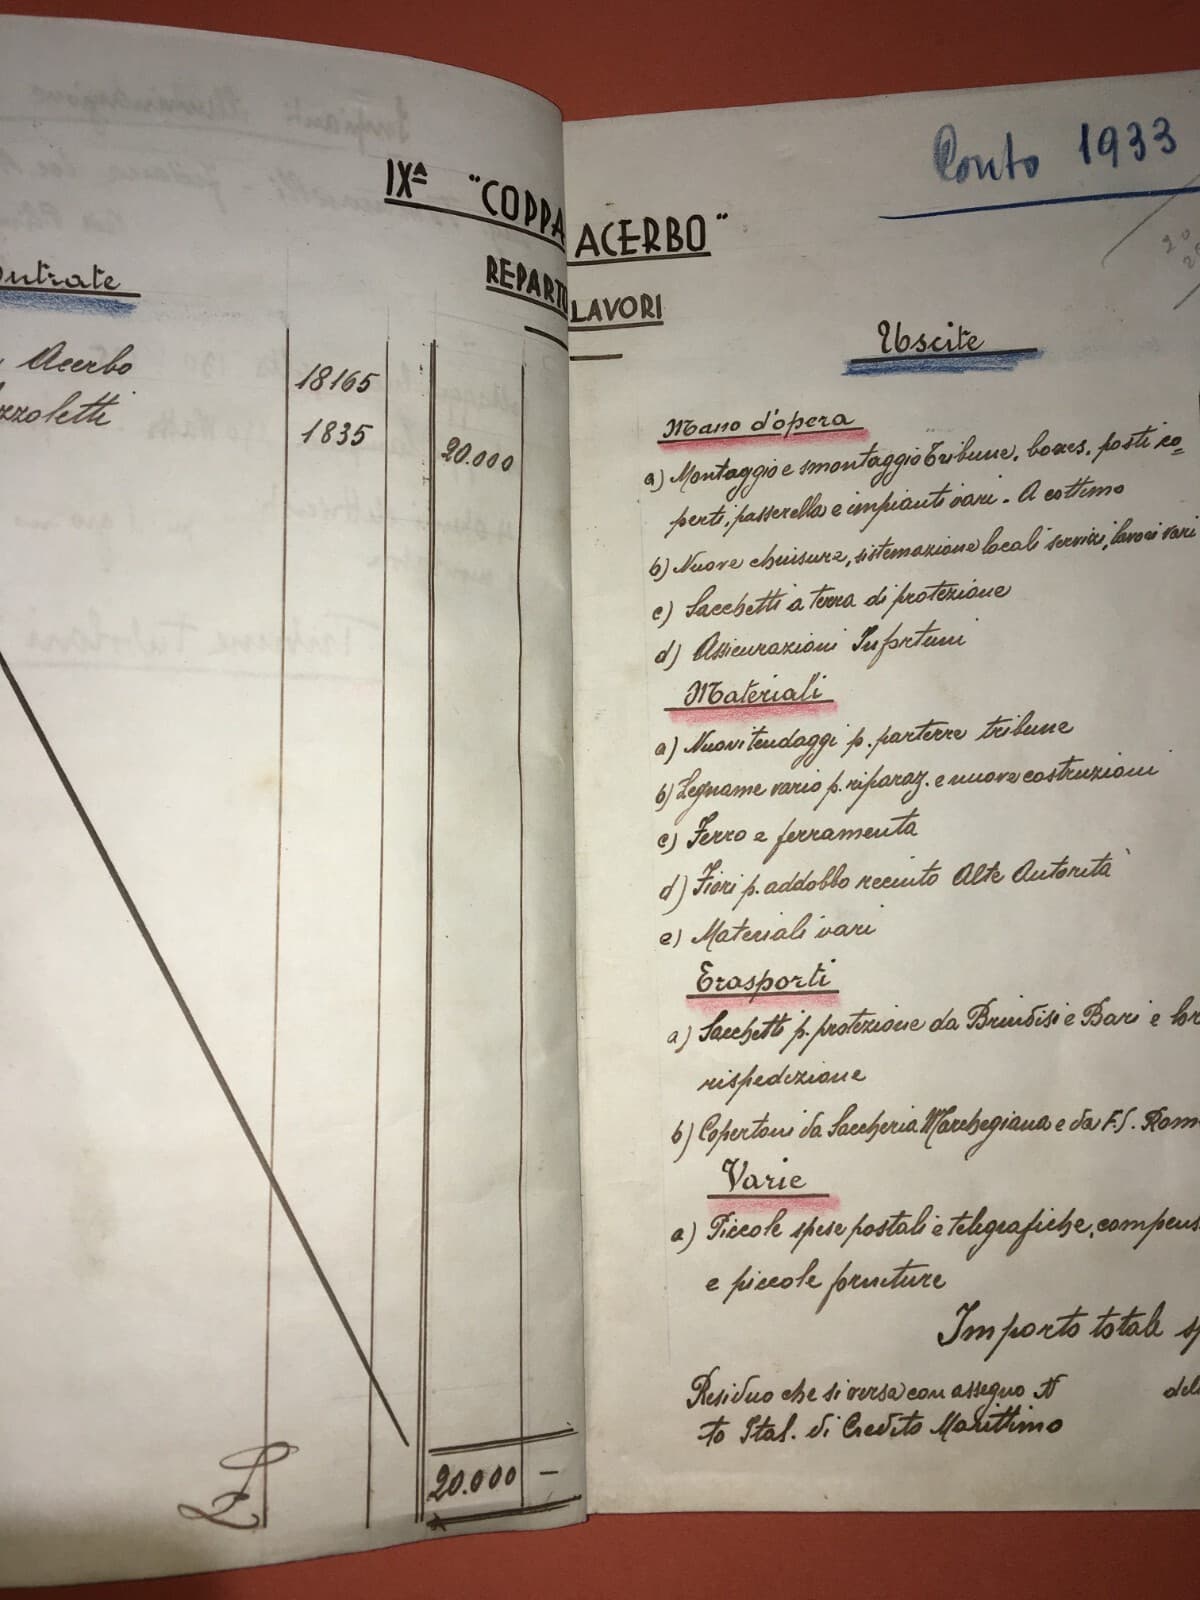 IXª "COPPA ACERBO"
REPARTO LAVORI
Conto 1933
Entrate
Acerbo 18165
1835 20.000
£ 20.000 —
Uscite
Mano d'opera
a) Montaggio e smontaggio Tribune, boxes, posti co=
perti, passerella e impianti vari. A cottimo
b) Nuove chiusure, sistemazione locali servizi, lavori vari
c) Sacchetti a terra di protezione
d) Assicurazioni Infortuni
Materiali
a) Nuovi tendaggi p. parterre tribune
b) Legname vario p. riparaz. e nuove costruzioni
c) Ferro e ferramenta
d) Fiori p. addobbo recinto Alte Autorità
e) Materiali vari
Trasporti
a) Sacchetti p. protezione da Brindisi e Bari e lor
rispedizione
b) Copertoni da Saccheria Marchegiana e da F.S. Rom
Varie
a) Piccole spese postali e telegrafiche, compens
e piccole forniture
Importo totale sp
Residuo che si versa con assegno N dell
to Ital. di Credito Marittimo